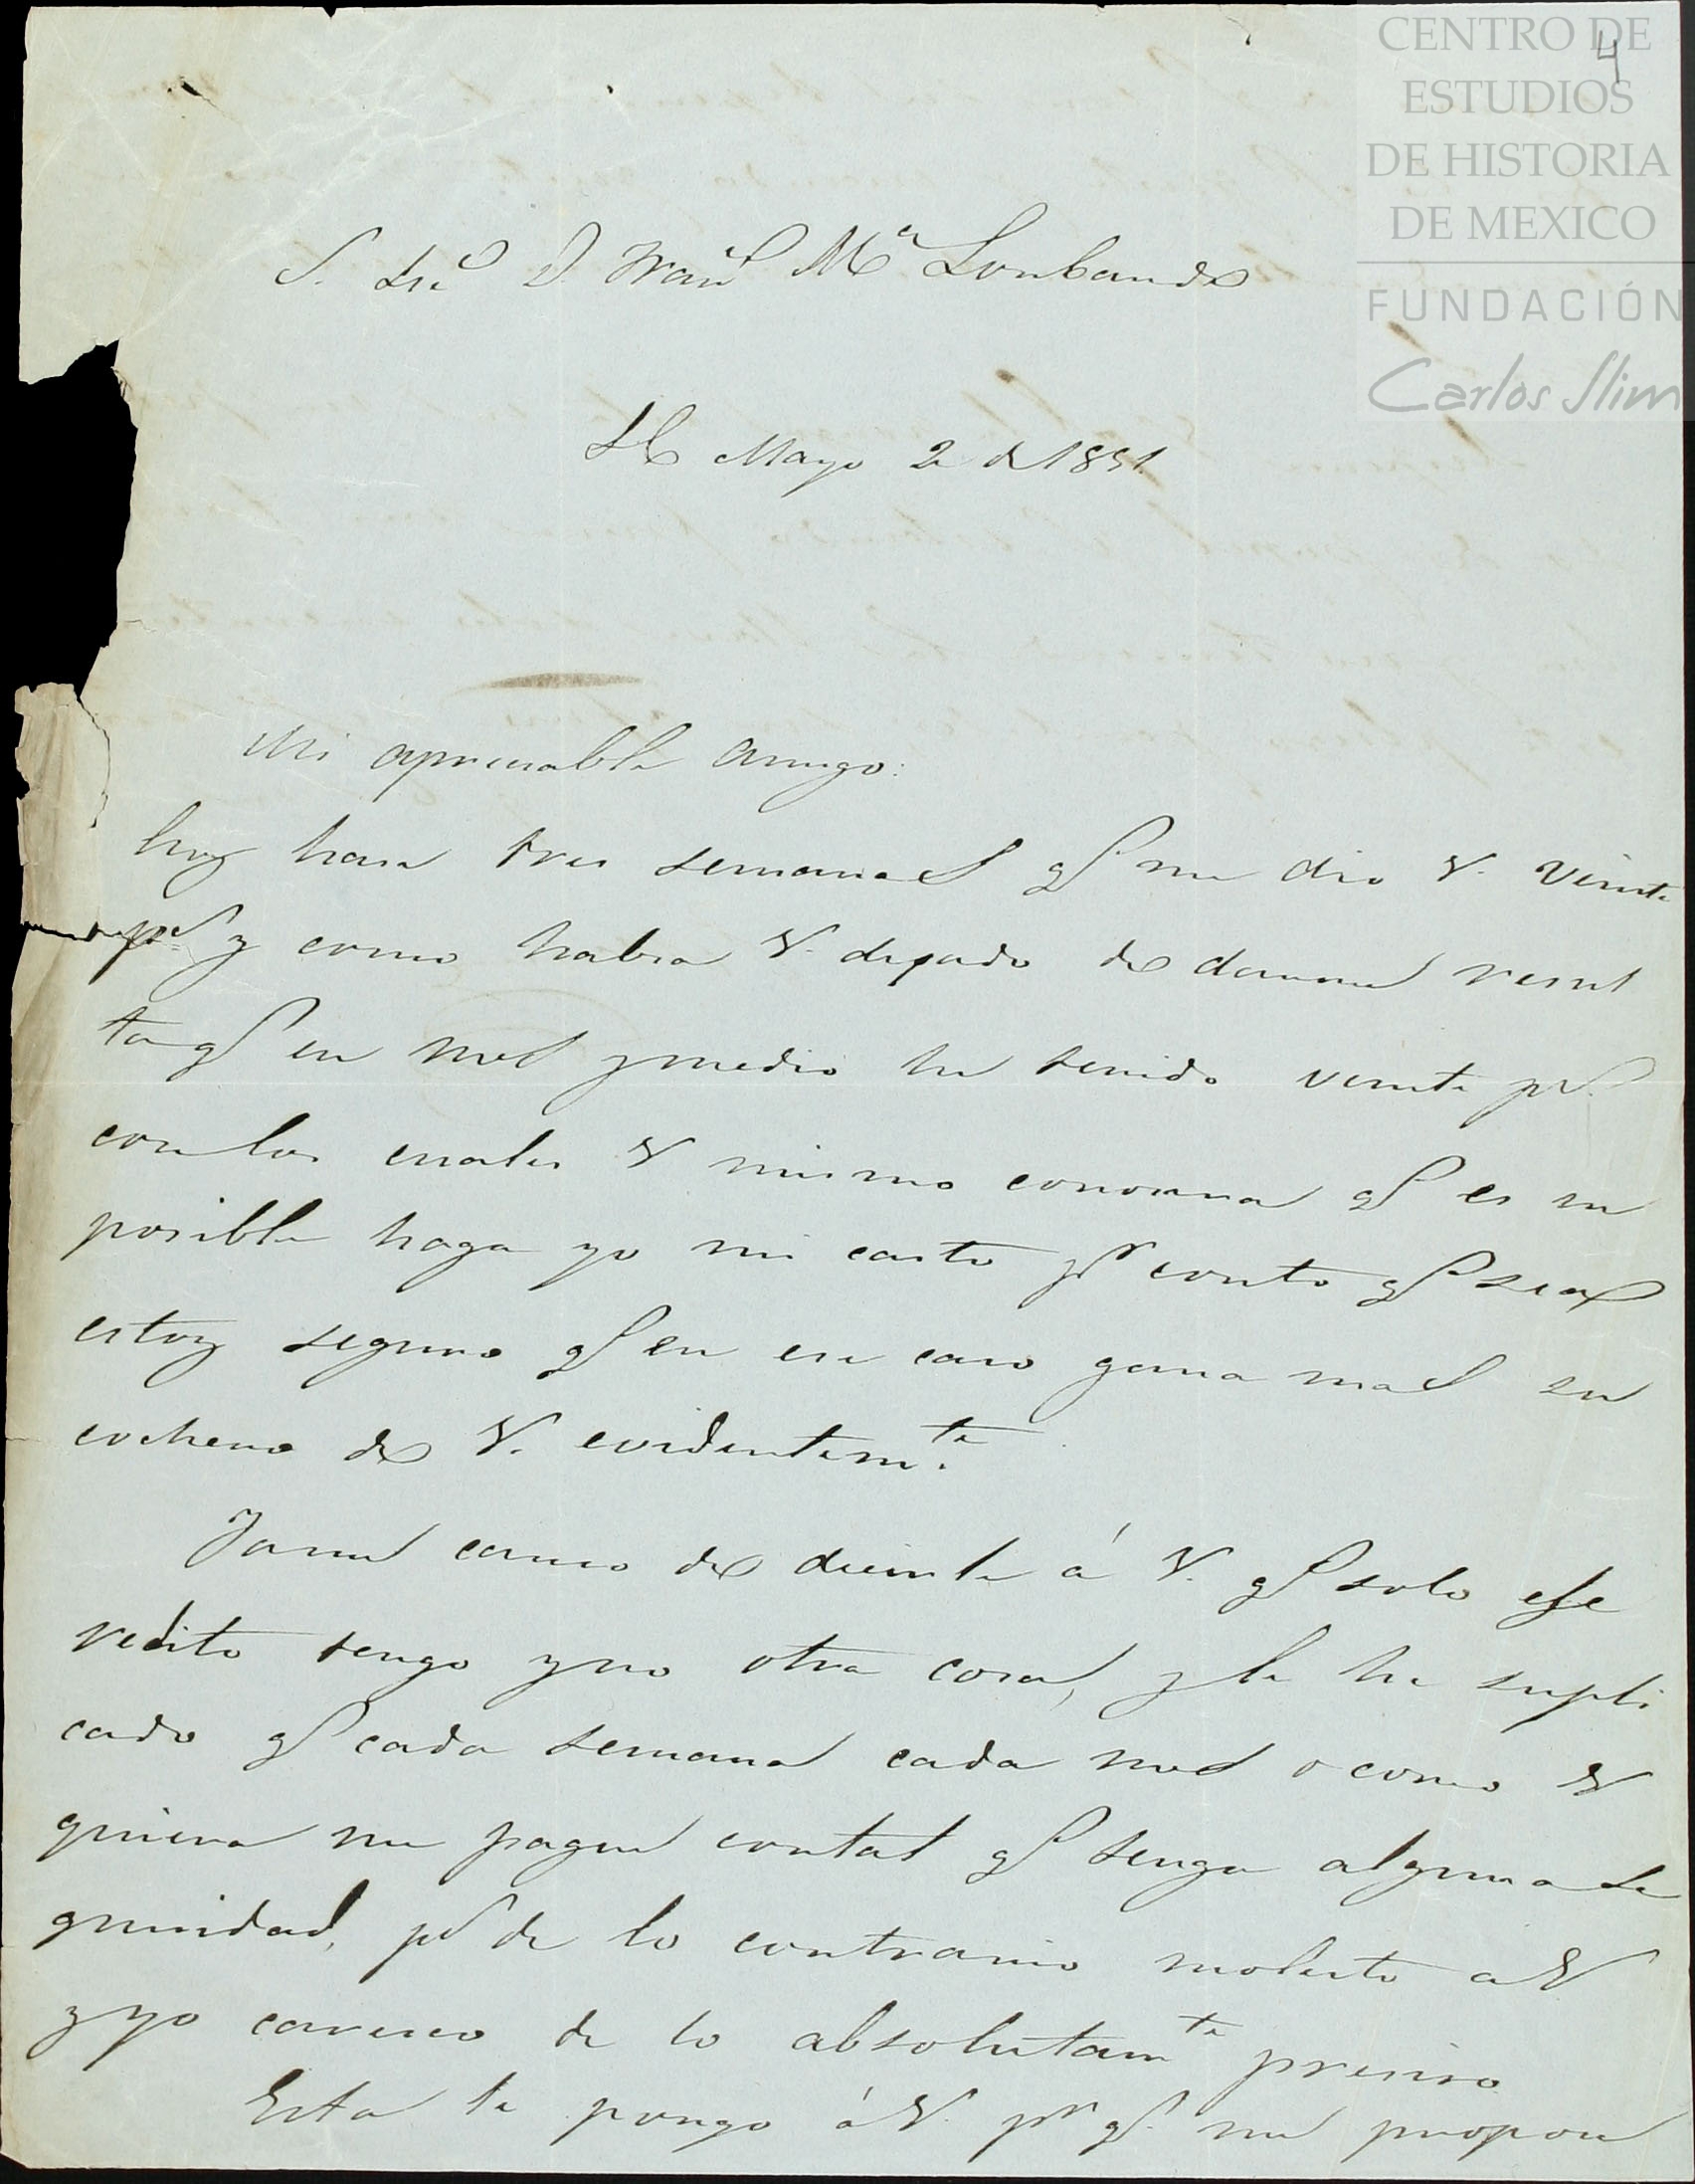 CENTRO DE
ESTUDIOS
DE HISTORIA
DE MEXICO
FUNDACIÓN
Carlos Slim
4
S. Lic.º D. Fran.co M.a Lombardo
Mayo 2 de 1851.
Mi apreciable amigo:
hoy hace tres semanas q.e me dio V. veinte
p.s y como habia V. dejado de darme resul
ta q.e en mes y medio he tenido veinte p.s
con los cuales V mismo conocera q.e es im
posible haga yo mi gasto p.r corto q.e sea
estoy seguro q.e en ese caso gana mas su
cochero de V. evidentem.te
Jamas ceso de decirle á V. q.e solo ese
redito tengo y no otra cosa, y le he supli
cado q.e cada semana cada mes o como V
quiera me pague con tal q.e tenga alguna se
guridad, p.s de lo contrario molesto a V
y yo caresco de lo absolutam.te preciso
Esta le pongo á V. p.r q.e me propon